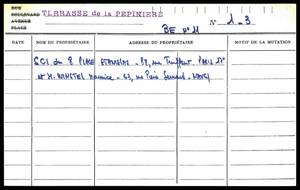 RUE
BOULEVARD
AVENUE
PLACE
TERRASSE de la PEPINIERE
N° 1-3
BE n° 21
DATE
NOM DU PROPRIÉTAIRE
ADRESSE DU PROPRIÉTAIRE
MOTIF DE LA MUTATION
SCI du 8 PLACE STANISLAS - 89, rue Truffaut. PARIS 17°
et M. Maurice - 63, rue